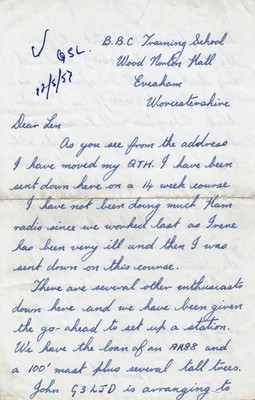 ✓ QSL.
12/5/57
B.B.C Training School
Wood Norton Hall
Evesham
Worcestershire
Dear Len
As you see from the address
I have moved my QTH. I have been
sent down here on a 14 week course
I have not been doing much Ham
radio since we worked last as Irene
has been very ill and then I was
sent down on this course.
There are several other enthusiasts
down here and we have been given
the go-ahead to set up a station.
We have the loan of an AR88 and
a 100' mast plus several tall trees.
John G3LJD is arranging to